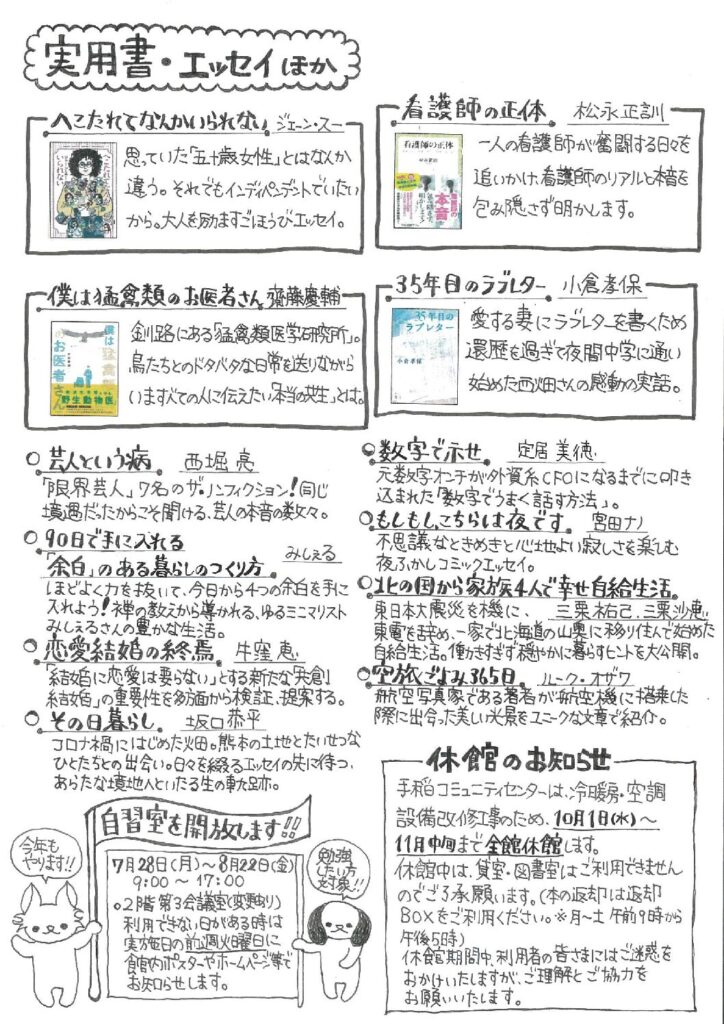 実用書・エッセイほか
へこたれてなんかいられない ジェーン・スー
思っていた「五十歳女性」とはなんか
違う。それでもインディペンデントでいたい
から。大人を励ますごほうびエッセイ。
看護師の正体 松永正訓
看護師の正体
一人の看護師が奮闘する日々を
追いかけ、看護師のリアルと本音を
包み隠さず明かします。
本音
僕は猛禽類のお医者さん 齊藤慶輔
僕は猛禽類のお医者さん
野生動物医
釧路にある「猛禽類医学研究所」。
鳥たちとのドタバタな日常を送りながら
いますべての人に伝えたい「本当の共生」とは。
35年目のラブレター 小倉孝保
35年目の
ラブレター
小倉孝保
愛する妻にラブレターを書くため
還暦を過ぎて夜間中学に通い
始めた西畑さんの感動の実話。
○芸人という病 西堀亮
「限界芸人」7名のザ・ノンフィクション!同じ
境遇だったからこそ聞ける、芸人の本音の数々。
○90日で手に入れる
「余白」のある暮らしのつくり方 みしぇる
ほどよく力を抜いて、今日から4つの余白を手に
入れよう!禅の教えから導かれる、ゆるミニマリスト
みしぇるさんの豊かな生活。
○恋愛結婚の終焉 牛窪恵
「結婚に恋愛は要らない」とする新たな「共創
結婚」の重要性を多方面から検証、提案する。
○その日暮らし 坂口恭平
コロナ禍にはじめた畑。熊本の土地とたいせつな
ひとたちとの出会い。日々を綴るエッセイの先に待つ、
あらたな境地へといたる生の軌跡。
○数字で示せ 定居美徳
元数字オンチが外資系CFOになるまでに叩き
込まれた「数字でうまく話す方法」。
○もしもし、こちらは夜です。 宮田ナノ
不思議なときめきと心地よい寂しさを楽しむ
夜ふかしコミックエッセイ。
○北の国から家族4人で幸せ自給生活。
東日本大震災を機に、 三栗祐己、三栗沙恵
東電を辞め、一家で北海道の山奥に移り住んで始めた
自給生活。働かずぎず穏やかに暮らすヒントを大公開。
○空旅ごよみ365日 ルーク・オザワ
航空写真家である著者が航空機に搭乗した
際に出合った美しい光景をユニークな文章で紹介。
自習室を開放します!!
今年も
やります!!
7月28日(月)～8月22日(金)
9:00～17:00
○2階 第3会議室(変更あり)
利用できない日がある時は
実施毎の前週火曜日に
館内ポスターやホームページ等で
お知らせします。
勉強
したい方
対象!!
休館のお知らせ
手稲コミュニティセンターは、冷暖房・空調
設備改修工事のため、10月1日(水)～
11月中旬まで全館休館します。
休館中は、貸室・図書室はご利用できません
のでご了承願います。(本の返却は返却
BOXをご利用ください。※月～土 午前9時から
午後5時)
休館期間中、利用者の皆さまにはご迷惑を
おかけいたしますが、ご理解とご協力を
お願いいたします。